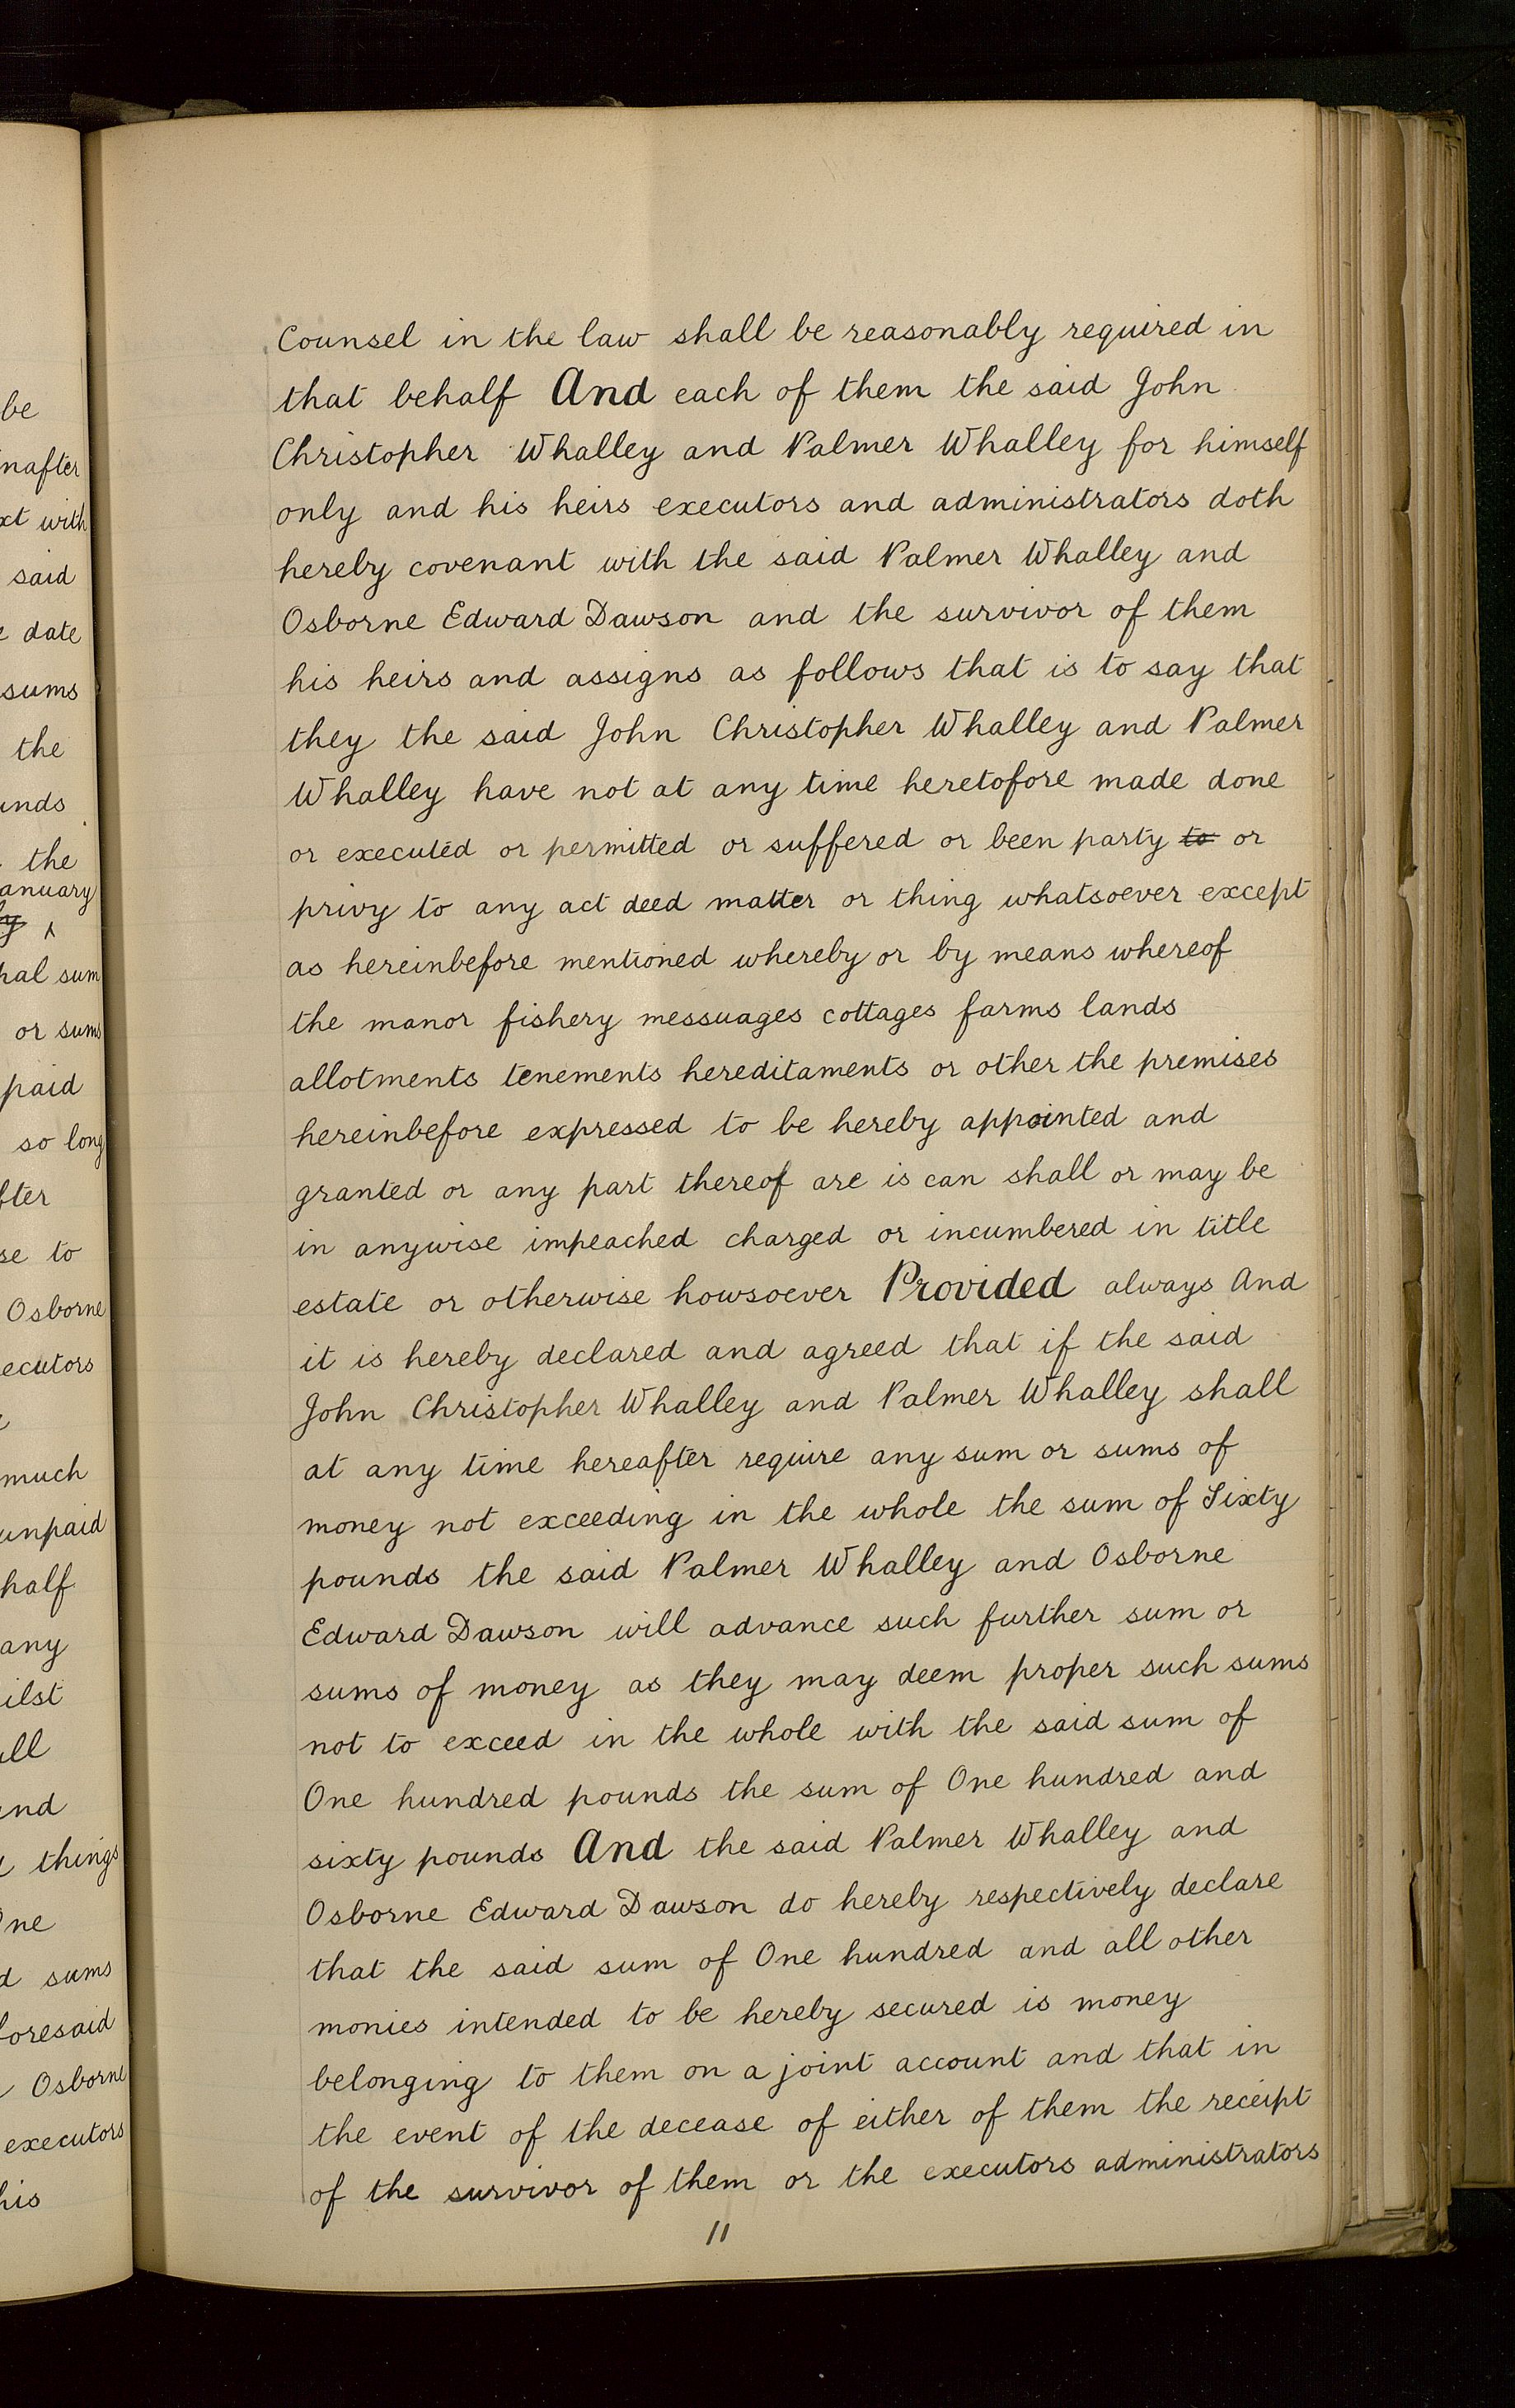 be
nafter
xt with
said
e date
sums
the
unds
the
anuary
hal sum
or sums
paid
so long
fter
se to
Osborne
ecutors
much
unpaid
half
any
ilst
all
and
things
One
d sums
foresaid
Osborne
executors
his
Counsel in the law shall be reasonably required in
that behalf And each of them the said John
Christopher Whalley and Palmer Whalley for himself
only and his heirs executors and administrators doth
hereby covenant with the said Palmer Whalley and
Osborne Edward Dawson and the survivor of them
his heirs and assigns as follows that is to say that
they the said John Christopher Whalley and Palmer
Whalley have not at any time heretofore made done
or executed or permitted or suffered or been party to or
privy to any act deed matter or thing whatsoever except
as hereinbefore mentioned whereby or by means whereof
the manor fishery messuages cottages farms lands
allotments tenements hereditaments or other the premises
hereinbefore expressed to be hereby appointed and
granted or any part thereof are is can shall or may be
in anywise impeached charged or incumbered in title
estate or otherwise howsoever Provided always And
it is hereby declared and agreed that if the said
John Christopher Whalley and Palmer Whalley shall
at any time hereafter require any sum or sums of
money not exceeding in the whole the sum of Sixty
pounds the said Palmer Whalley and Osborne
Edward Dawson will advance such further sum or
sums of money as they may deem proper such sums
not to exceed in the whole with the said sum of
One hundred pounds the sum of One hundred and
sixty pounds And the said Palmer Whalley and
Osborne Edward Dawson do hereby respectively declare
that the said sum of One hundred and all other
monies intended to be hereby secured is money
belonging to them on a joint account and that in
the event of the decease of either of them the receipt
of the survivor of them or the executors administrators
11